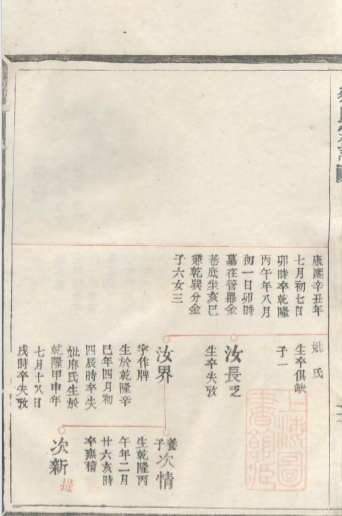 康熙辛丑年
七月初七日
卯時卒乾隆
丙午年八月
初一日卯時
墓在管墨金
善底坐亥巳
兼乾巽分金
子六女三
妣氏
生卒俱缺
子一
汝長乏
生卒失攷
汝界
字作牌
生於乾隆辛
巳年四月初
四辰時卒失
妣席氏生於
乾隆甲申年
七月十八日
戌時卒失攷
養子
次情
生乾隆丙
午年二月
廿六亥時
卒無稽
次新
上海圖書館藏